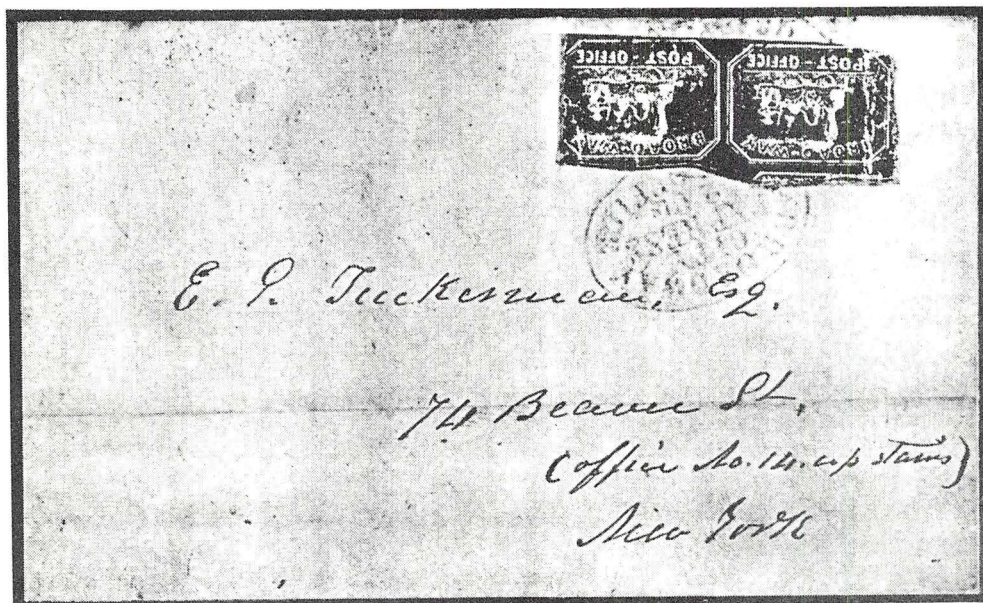 POST-OFFICE POST-OFFICE
BROAD-WAY BROAD-WAY
E. P. Tuckerman, Esq.
74 Beaver St.
(office No. 14. up stairs)
New York